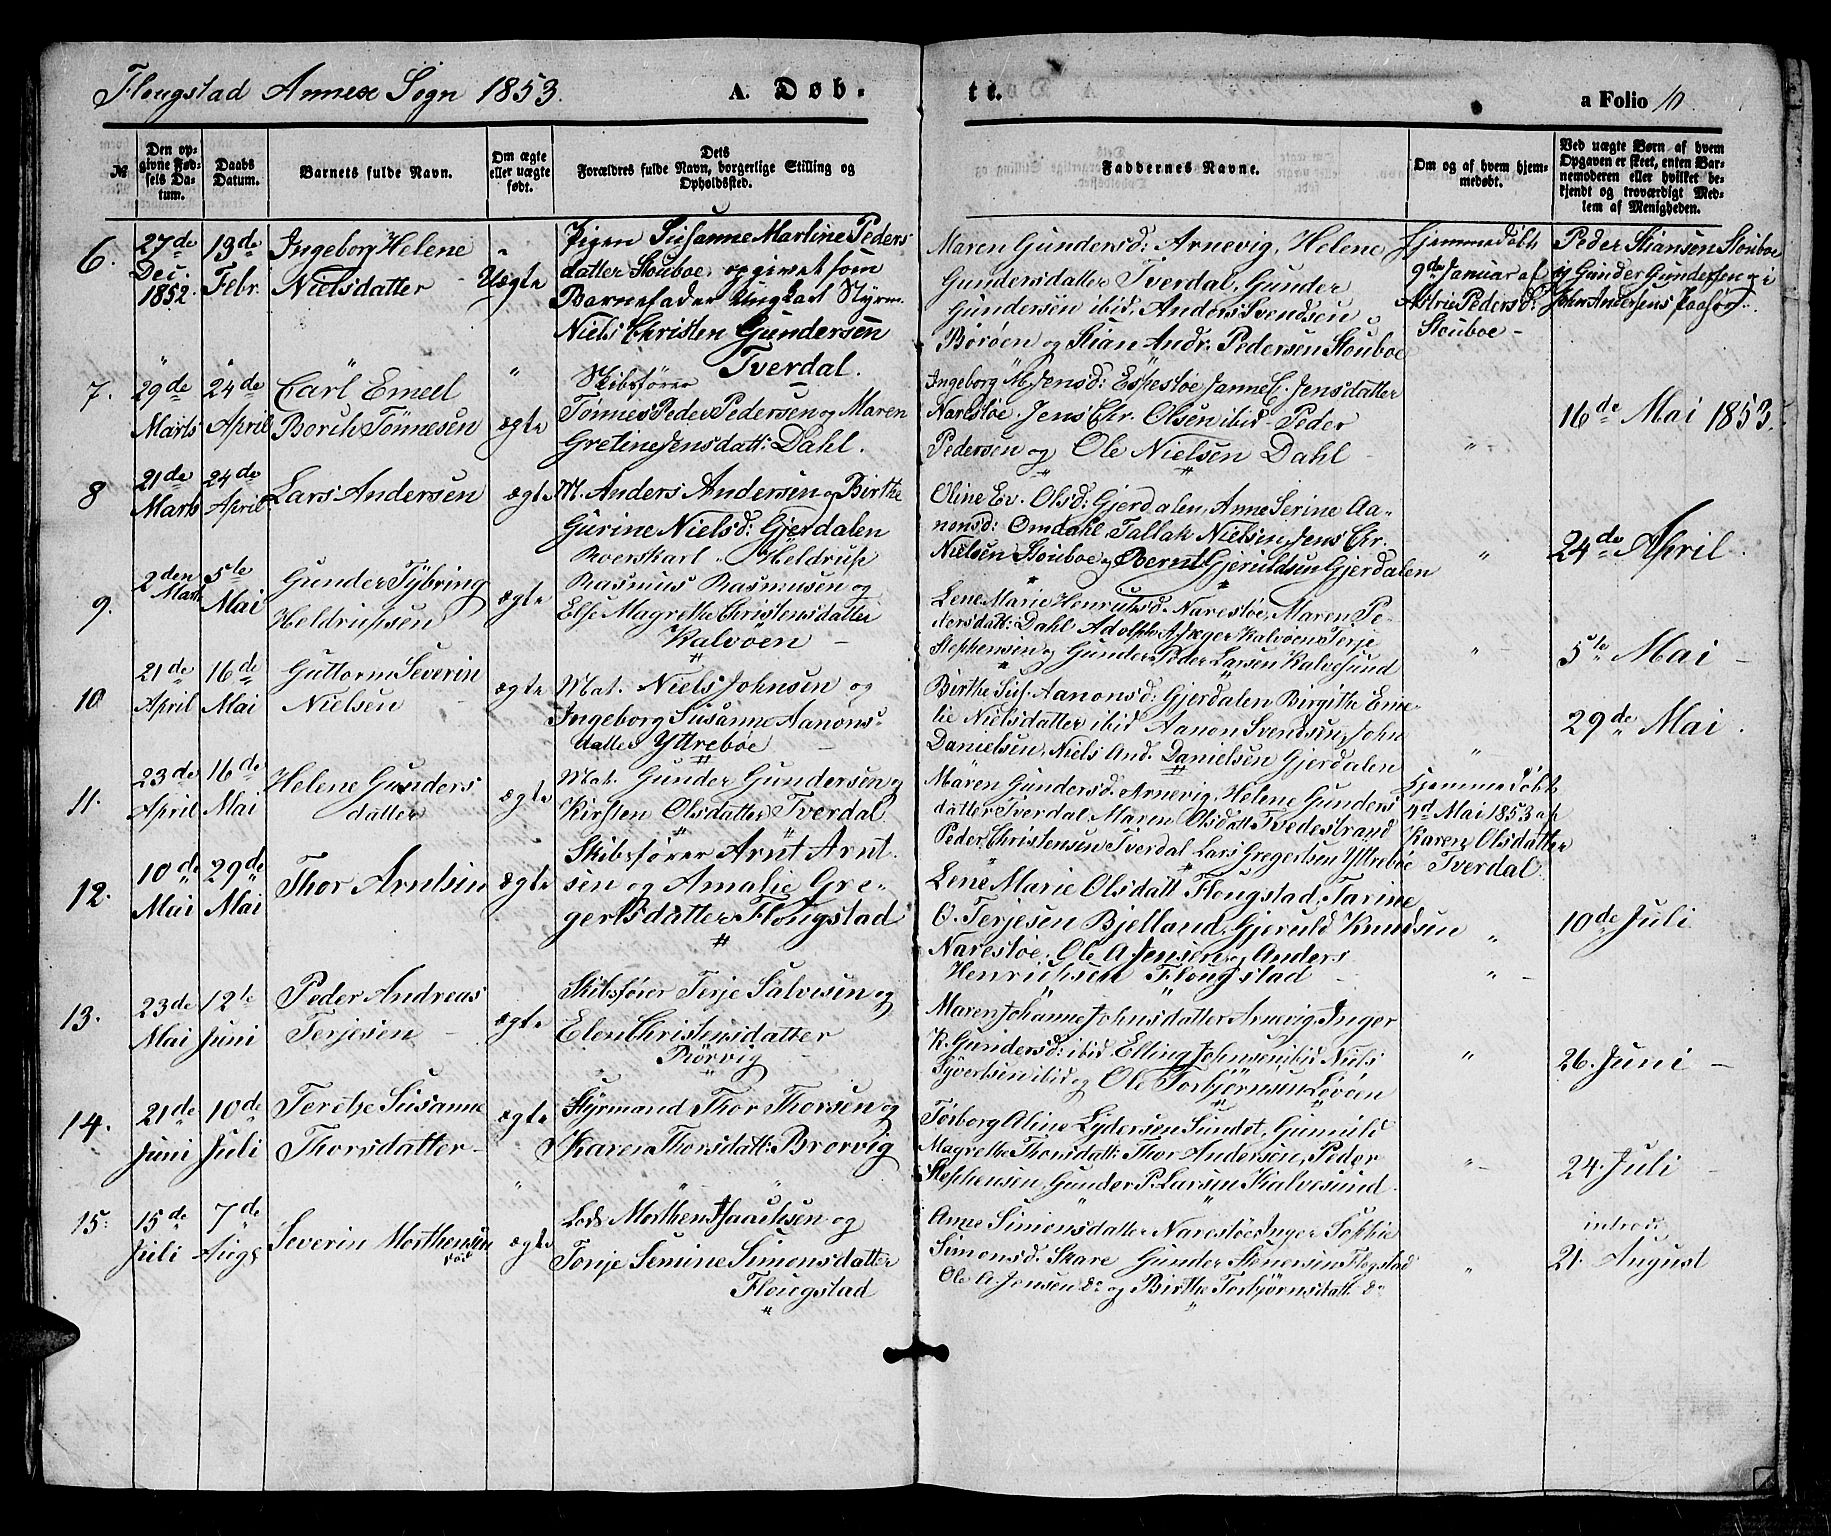 Flougstad Annex Sogn 1853.
A. Døb-
te.
a Folio 10
№
Den op-
givne Fød-
sels Da-
tum.
Daabs
Datum.
Barnets fulde Navn.
Om ægte
eller uægte
født.
Dets
Forældres fulde Navn, borgerlige Stilling og
Opholdssted.
Faddernes Navne.
Om og af hvem hjem-
medøbt.
Ved uægte Børn af hvem
Opgaven er skeet, enten Bar-
nemoderen eller hvilket be-
kjendt og troværdigt Med-
lem af Menigheden.
6.
27de
Dec.
1852.
13de
Febr.
Ingeborg Helene
Nielsdatter
Uægte
Pigen Susanne Martine Peders
datter Stouboe, opgivet som
Barnefader Ungkarl Styrm.
Niels Christen Gundersen
Tverdal.
Maren Gundersd: Arnevig, Helene
Gundersdatter Tverdal, Gunder
Gundersen ibid, Anders Svendsen
Börøen og Stian Andr. Pedersen Stouboe
Hjemmedøbt
9de Januar af
Astrie Pedersd:
Stouboe -
Peder Stiansen Stouboe
og Gunder Gundersen og i
John Andersens Paasyn.
7.
29de
Marts
24de
April
Carl Emeel
Borch Tönnesen
ægte
Skibsfører
Tønnes Peder Pedersen og Maren
Gretine Jensdatt: Dahl.
Ingeborg M. Jensd: Eskestøe Janne C. Jensdatter
Narestøe. Jens Chr. Olsen ibid - Peder
Pedersen og Ole Nielsen Dahl
"
16de Mai 1853.
8
21de
Marts
24de
April
Lars Andersen
ægte
M. Anders Andersen og Birthe
Gurine Nielsd: Gjerdalen
Oline Ev. Olsd: Gjerdalen, Anne Serine Aa-
nonsd: Omdahl, Tallak Nielsen, Jens Chr.
Nielsen Stouboe og Övernt Gjeruldsen Gjerdalen
"
24de April.
9.
2den
Marts
5te
Mai
Gunder Tybring
Heldrupsen
ægte
Roerskarl Heldrup
Rasmus Rasmusen og
Else Magrethe Christensdatter
Kalvöen -
Lene Marie Henriksd. Narestøe, Maren Pe-
dersdatt: Dahl Adolph A. Jæger Kalvöen Terje
Stephensen og Gunder Peder Larsen Kalvesund
"
5te Mai -
10
21de
April
16de
Mai
Guttorm Severin
Nielsen
ægte
Mat. Niels Johnsen og
Ingeborg Susanne Aanons-
datter Yttrebøe
Birthe Sus. Aanonsd: Gjerdalen Birgithe Eme-
lie Nielsdatter ibid Aanon Svendsen, John
Danielsen, Niels And. Danielsen Gjerdalen
"
29de Mai.
11.
23de
April
16de
Mai
Helene Gunders
datter
ægte
Mat. Gunder Gundersen og
Kirsten Olsdatter Tverdal
Maren Gundersd: Arnevig, Helene Gunders
datter Tverdal Maren Olsdatt Tvedestrand
Peder Christensen Tverdal Lars Gregertsen Yttrebøe
Hjemmedøbt
2d Mai 1853 af
Karen Olsdatter
Tverdal.
12.
10de
Mai
29de
Mai
Thor Arntsen
ægte
Skibsfører Arnt Arnt
sen og Amalie Gre-
gertsdatter Flougstad
Lene Marie Olsdatt Flougstad, Tarine
O. Terjesen Bjelland, Gjeruld Knudsen
Narestøe, Ole A Jensen og Anders
Henrichsen Flougstad
"
10de Juli
13.
23de
Mai
12te
Juni
Peder Andreas
Terjesen
ægte
Skibsfører Terje Salvesen og
Elen Christensdatter
Rörvig
Maren Johanne Johnsdatter Arnevig, Inger
K. Gundersd: ibid Elling Johnsen ibid Niels
Syvertsen ibid og Ole Torbjörnsen Lövöen
"
26. Juni -
14.
21de
Juni
10de
Juli
Terese Susanne
Thorsdatter -
ægte
Styrmand Thor Thorsen og
Karen Thorsdatt: Brorvig
Torborg Aline Lydersen Sundet, Gunuld
Magrethe Thorsdatt: Thor Andersen, Peder
Stephensen, Gunder P. Larsen Kalvesund.
"
24. Juli
15.
15de
Juli
7de
Aug.
Severin Morthensen
ægte
Lods Morthen Isaachsen og
Tonje Semine Simonsdatter
Flougstad
Anne Simonsdatter Narestøe, Inger Sophie
Simonsd: Skare Gunder Stenersen Flogstad
Ole A. Jensen do og Birthe Torbjørnsdatt do
"
introd.
21. August